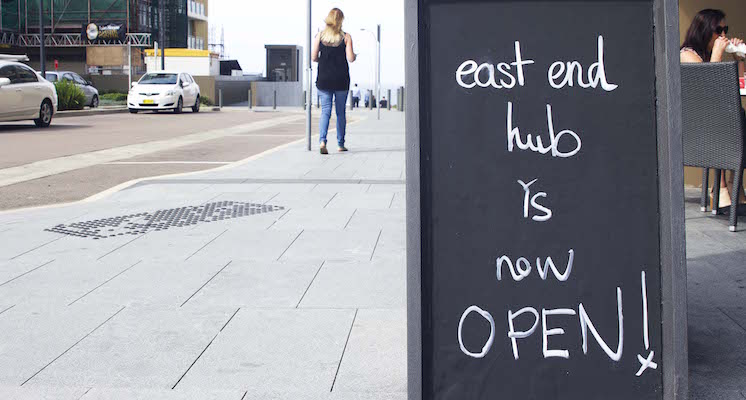 east end
hub
is
now
OPEN!x